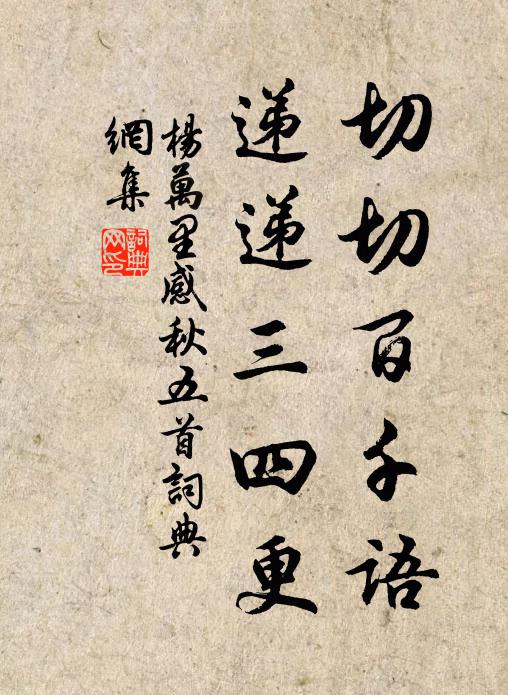 切切百千语
递递三四更
楊萬里感秋五首詞典
網集
詞典
网印